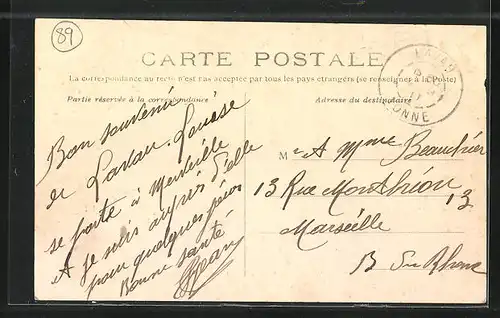 89
CARTE POSTALE
La correspondance au recto n'est pas acceptée par tous les pays étrangers (se renseigner à la Poste)
Partie réservée à la correspondance
Adresse du destinataire
Bon souvenir
de Louise
se porte à Merveille
A je suis auprès d'elle
pour quelques jours
Bonne santé
Jean
M
A Mme
13 Rue 13
Marseille
B Rhone
ONNE